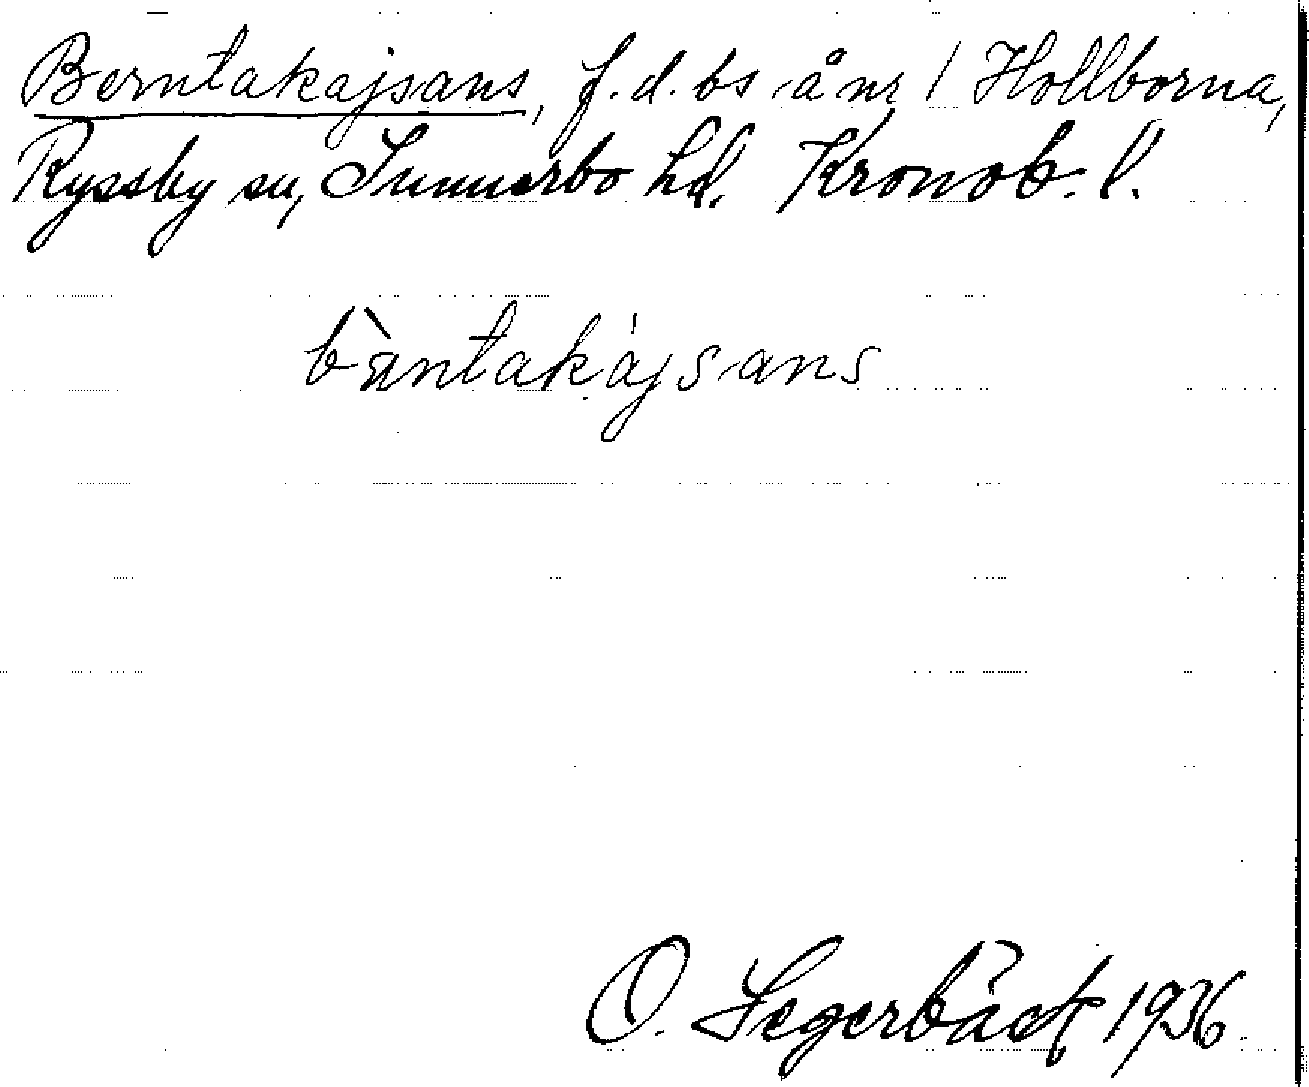 Berntakajsans, f.d. bs å nr 1 Hollborna,
Ryssby sn, Sunnerbo hd. Kronob. l.
bä̀ntakájsans
O. Segerbäck 1936.